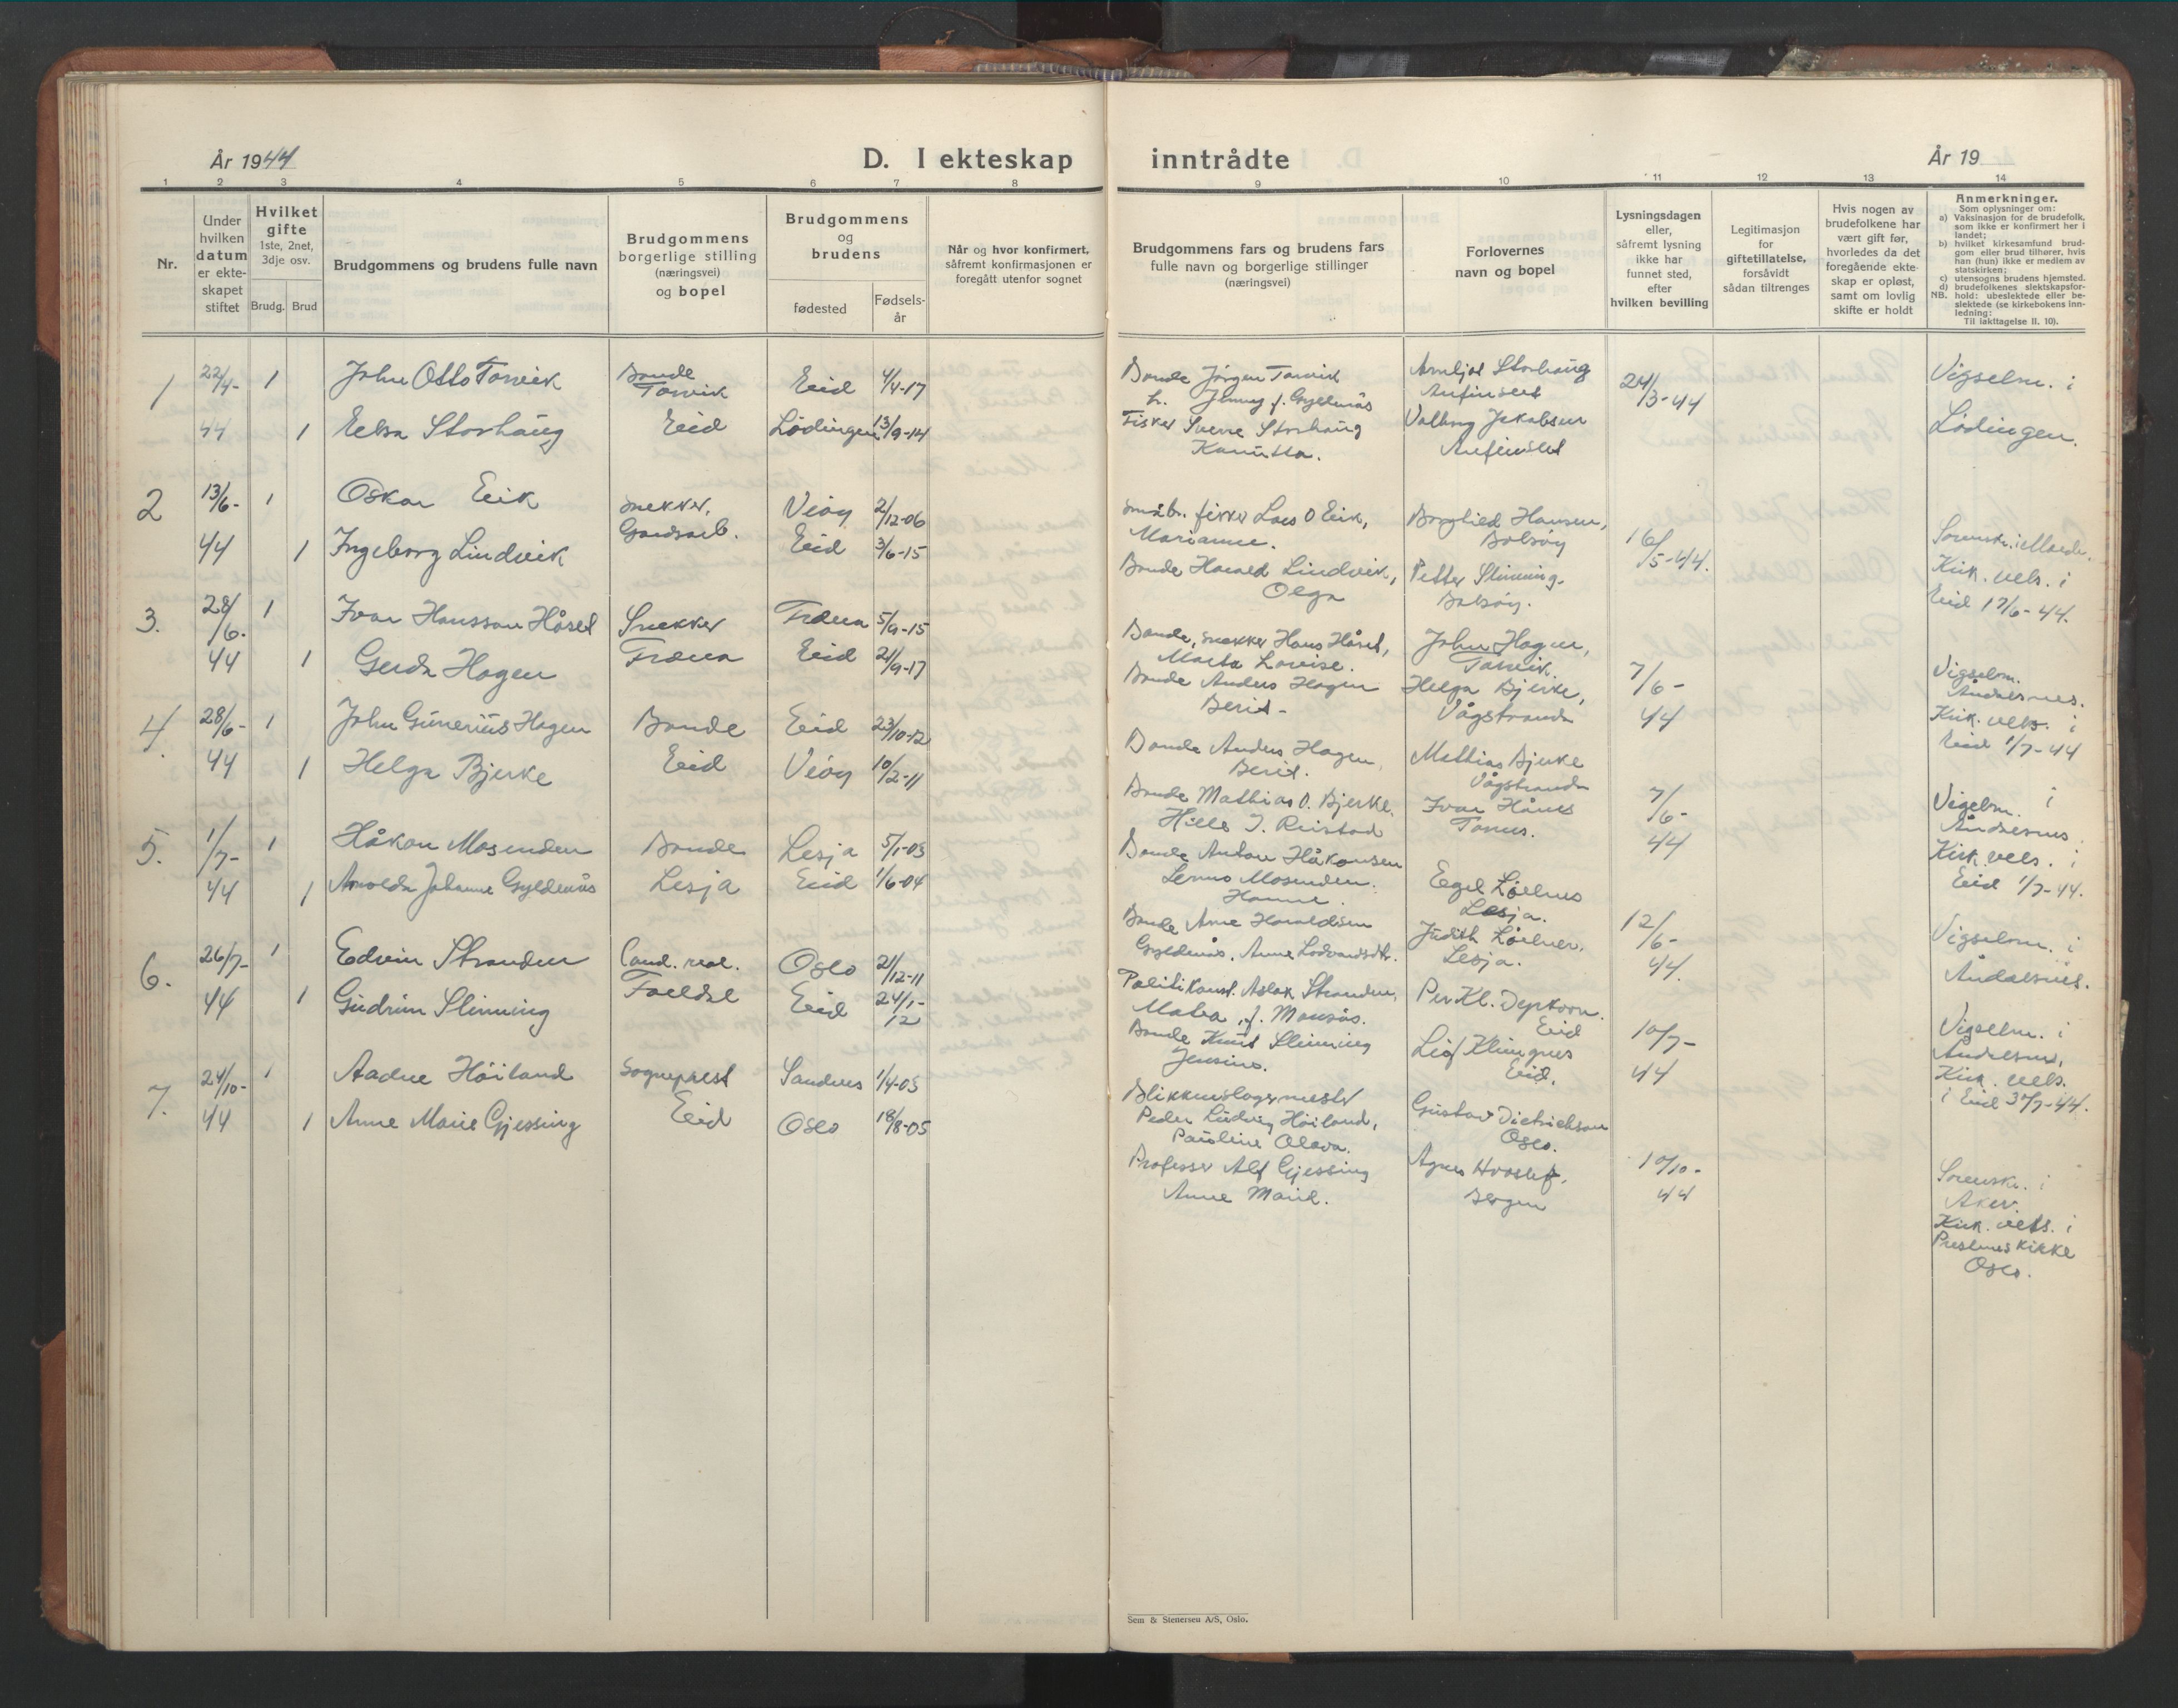 År 1944
D. I ekteskap inntrådte
År 19
1 2 3 4 5 6 7 8 9 10 11 12 13 14
Nr.
Under
hvilken
datum
er ekte-
skapet
stiftet
Hvilket
gifte
1ste, 2net,
3dje osv.
Brudg. Brud
Brudgommens og brudens fulle navn
Brudgommens
borgerlige stilling
(næringsvei)
og bopel
Brudgommens
og
brudens
fødested
Fødsels-
år
Når og hvor konfirmert,
såfremt konfirmasjonen er
foregått utenfor sognet
Brudgommens fars og brudens fars
fulle navn og borgerlige stillinger
(næringsvei)
Forlovernes
navn og bopel
Lysningsdagen
eller,
såfremt lysning
ikke har
funnet sted,
efter
hvilken bevilling
Legitimasjon
for
giftetillatelse,
forsåvidt
sådan tiltrenges
Hvis nogen av
brudefolkene har
vært gift før,
hvorledes da det
foregående ekte-
skap er opløst,
samt om lovlig
skifte er holdt
Anmerkninger.
Som oplysninger om:
a) Vaksinasjon for de brudefolk,
som ikke er konfirmert her i
landet;
b) hvilket kirkesamfund brud-
gom eller brud tilhører, hvis
han (hun) ikke er medlem av
statskirken;
c) utensogns brudens hjemsted.
d) brudefolkenes slektskapsfor-
NB. hold: ubeslektede eller be-
slektede (se kirkebokens inn-
ledning:
Til iakttagelse II. 10).
1 22/4- 1 John Otto Torvik Bonde Torvik Eid 4/4-17
44 1 Ebba Storhaug Eid Lödingen 13/9-14
Bonde Jörgen Torvik
h. Jenny f. Gyldenås
Fisker Sverre Storhaug
Kanutta.
Arnljot Storhaug
Anfinslet
Valborg Jakobsen
Anfinslet
24/3-44
Vigselm. i
Lödingen.
2 13/6- 1 Oskar Eik Snekker, Veöy 2/12-06
44 1 Ingeborg Lindvik Gardsarb. Eid 3/6-15
Småbr. fisker Lars O Eik,
Marianne.
Bonde Harald Lindvik,
Olga
Borghild Hansen,
Bolsöy
Petter Slinning.
Bolsöy.
16/5-44.
Sorenskr. i Molde.
Kirk. vels. i
Eid 17/6-44.
3. 28/6- 1 Ivar Hansson Håset Snekker Træna 5/9-15
44 1 Gerda Hagen Træna Eid 21/9-17
Bonde, snekker Hans Håset,
Marta Lovise.
Bonde Anders Hagen
Berit -
John Hagen,
Torvik.
Helga Bjerke,
Vågstranda
7/6-
44
Vigselm.
Åndalsnes.
Kirk. vels. i
Eid 1/7-44
4. 28/6- 1 John Gunerius Hagen Bonde Eid 23/10-12
44 1 Helga Bjerke Eid Veöy 10/2-11
Bonde Anders Hagen,
Berit.
Bonde Mathias O. Bjerke.
Mathias Bjerke
Vågstranda
7/6-
44
Vigselm. i
Åndalsnes
Kirk. vels. i
Eid 1/7-44.
5. 1/7- 1 Håkon Mosenden Bonde Lesja 5/1-03
44 1 Arnolda Johanne Gyldenås Lesja Eid 1/6-04
Bonde Anton Håkonsen
Mosenden.
Hanne.
Bonde Arne Haraldsen
Gyldenås, Anne Lodvarsdtr.
Lesja.
Judith
Lesja.
12/6-
44.
Vigselm. i
Åndalsnes.
6. 26/7- 1 Edvin Stranden Cand. real. Oslo 21/12-11
44 1 Gudrun Slinning Eid 24/1-12
Politikonst. Aslak Stranden,
Bonde Knut Slinning
Per Kl.
Eid
Eid.
10/7-
44
Vigselm. i
Åndalsnes,
Kirk. vels.
i Eid 30/7-44.
7. 24/10- 1 Aadne Höiland Sogneprest Sandnes 1/4-03
44 1 Anne Marie Gjessing Eid Oslo 18/8-05
Blikkenslagermester
Peder Ludvig Höiland,
Pauline Olava.
Professer Alf Gjessing
Anne Marie.
Gustav Dietrichson
Oslo.
Agnes Hvoslef,
Bergen
10/10-
44
Sorenskr. i
Aker.
Kirk. vels. i
Prestenes kirke
Oslo.
Sem & Stenersen A/S, Oslo.